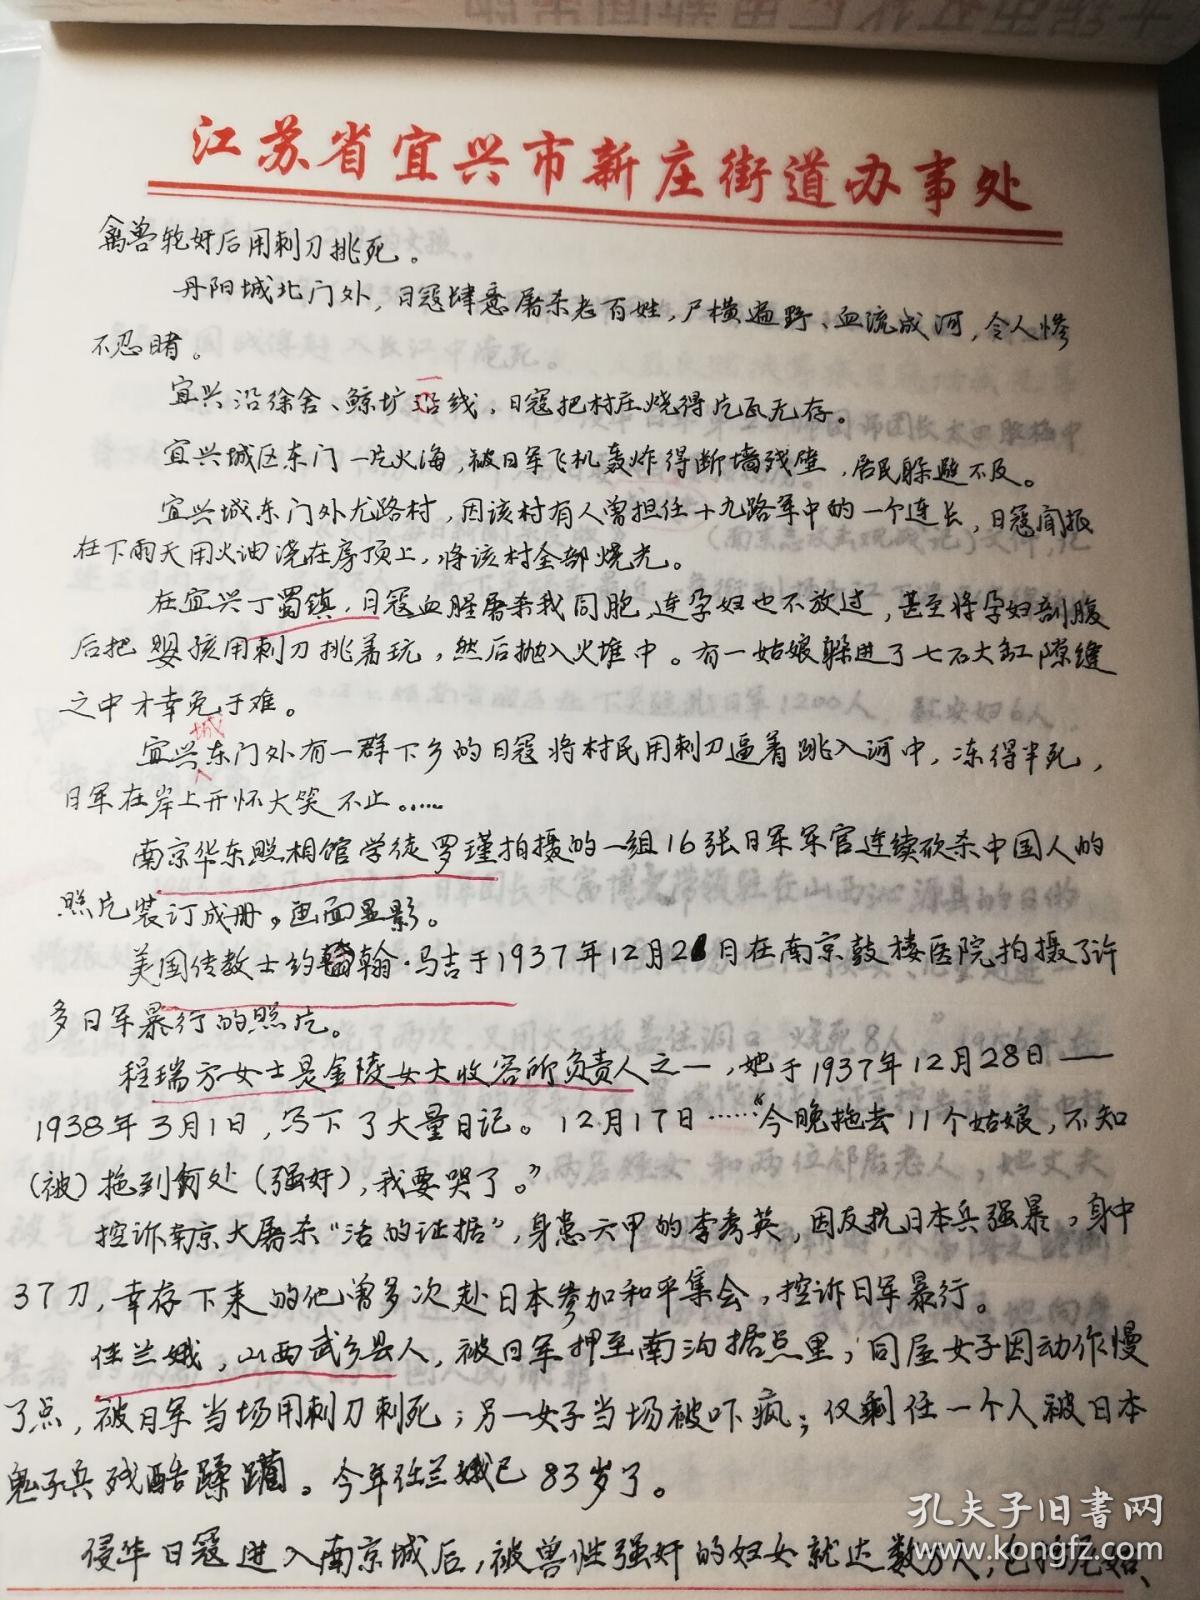 江苏省宜兴市新庄街道办事处
禽兽轮奸后用刺刀挑死。
丹阳城北门外，日寇肆意屠杀老百姓，尸横遍野、血流成河，令人惨
不忍睹。
宜兴沿徐舍、鲸圹沿线，日寇把村庄烧得片瓦无存。
宜兴城区东门一片火海，被日军飞机轰炸得断墙残壁，居民躲避不及。
宜兴城东门外尤路村，因该村有人曾担任十九路军中的一个连长，日寇闻报
在下雨天用火油浇在房顶上，将该村全部烧光。
在宜兴丁蜀镇，日寇血腥屠杀我同胞，连孕妇也不放过，甚至将孕妇剖腹
后把婴孩用刺刀挑着玩，然后抛入火堆中。有一姑娘躲进了七石大缸隙缝
之中才幸免于难。
宜兴城东门外有一群下乡的日寇将村民用刺刀逼着跳入河中，冻得半死，
日军在岸上开怀大笑不止……
南京华东照相馆学徒罗瑾拍摄的一组16张日军军官连续砍杀中国人的
照片装订成册。画面显影。
美国传教士约翰·马吉于1937年12月2日在南京鼓楼医院拍摄了许
多日军暴行的照片。
程瑞方女士是金陵女大收容所负责人之一，她于1937年12月28日——
1938年3月1日，写下了大量日记。12月17日……“今晚拖去11个姑娘，不知
（被）拖到何处（强奸），我要哭了。”
控诉南京大屠杀“活的证据”，身患六甲的李秀英，因反抗日本兵强暴，身中
37刀，幸存下来的他曾多次赴日本参加和平集会，控诉日军暴行。
任兰娥，山西武乡县人，被日军押至南沟据点里，同屋女子因动作慢
了点，被日军当场用刺刀刺死；另一女子当场被吓疯；仅剩任一个人被日本
鬼子兵残酷蹂躏。今年任兰娥已83岁了。
侵华日寇进入南京城后，被兽性强奸的妇女就达数万人，包括尼姑、
孔夫子旧书网
www.kongfz.com